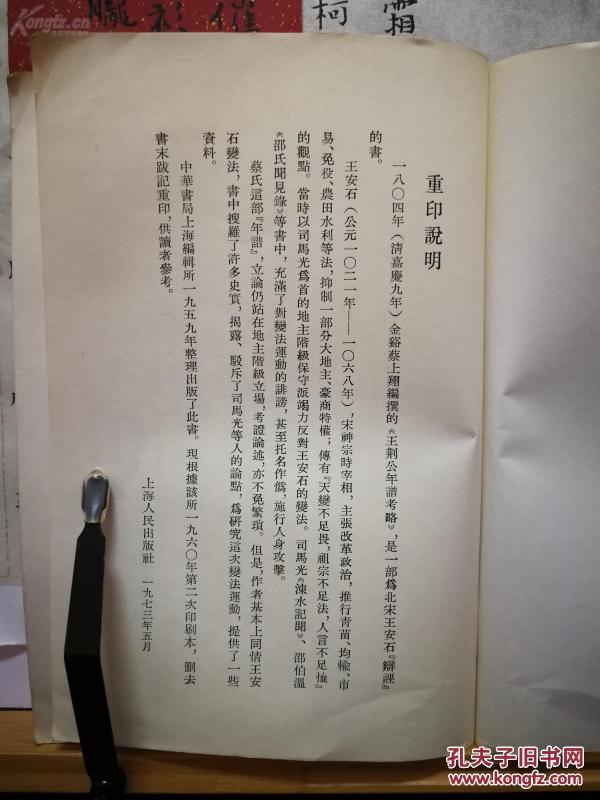 重印說明
一八〇四年（清嘉慶九年）金谿蔡上翔編撰的《王荆公年譜考略》，是一部爲北宋王安石『辯誣』
的書。
王安石（公元一〇二一年——一〇六八年），宋神宗時宰相，主張改革政治，推行青苗、均輸、市
易、免役、農田水利等法，抑制一部分大地主、豪商特權；傳有『天變不足畏，祖宗不足法，人言不足恤』
的觀點。當時以司馬光爲首的地主階級保守派竭力反對王安石的變法。司馬光《涑水記聞》、邵伯溫
《邵氏聞見錄》等書中，充滿了對變法運動的誹謗，甚至托名作僞，施行人身攻擊。
蔡氏這部『年譜』，立論仍站在地主階級立場，考證論述，亦不免繁瑣。但是，作者基本上同情王安
石變法，書中搜羅了許多史實，揭露、駁斥了司馬光等人的論點，爲研究這次變法運動，提供了一些
資料。
中華書局上海編輯所一九五九年整理出版了此書。現根據該所一九六〇年第二次印刷本，删去
書末跋記重印，供讀者參考。
上海人民出版社　一九七三年五月
Kongfz.cn
催
柯
霜
孔夫子旧书网
www.kongfz.com